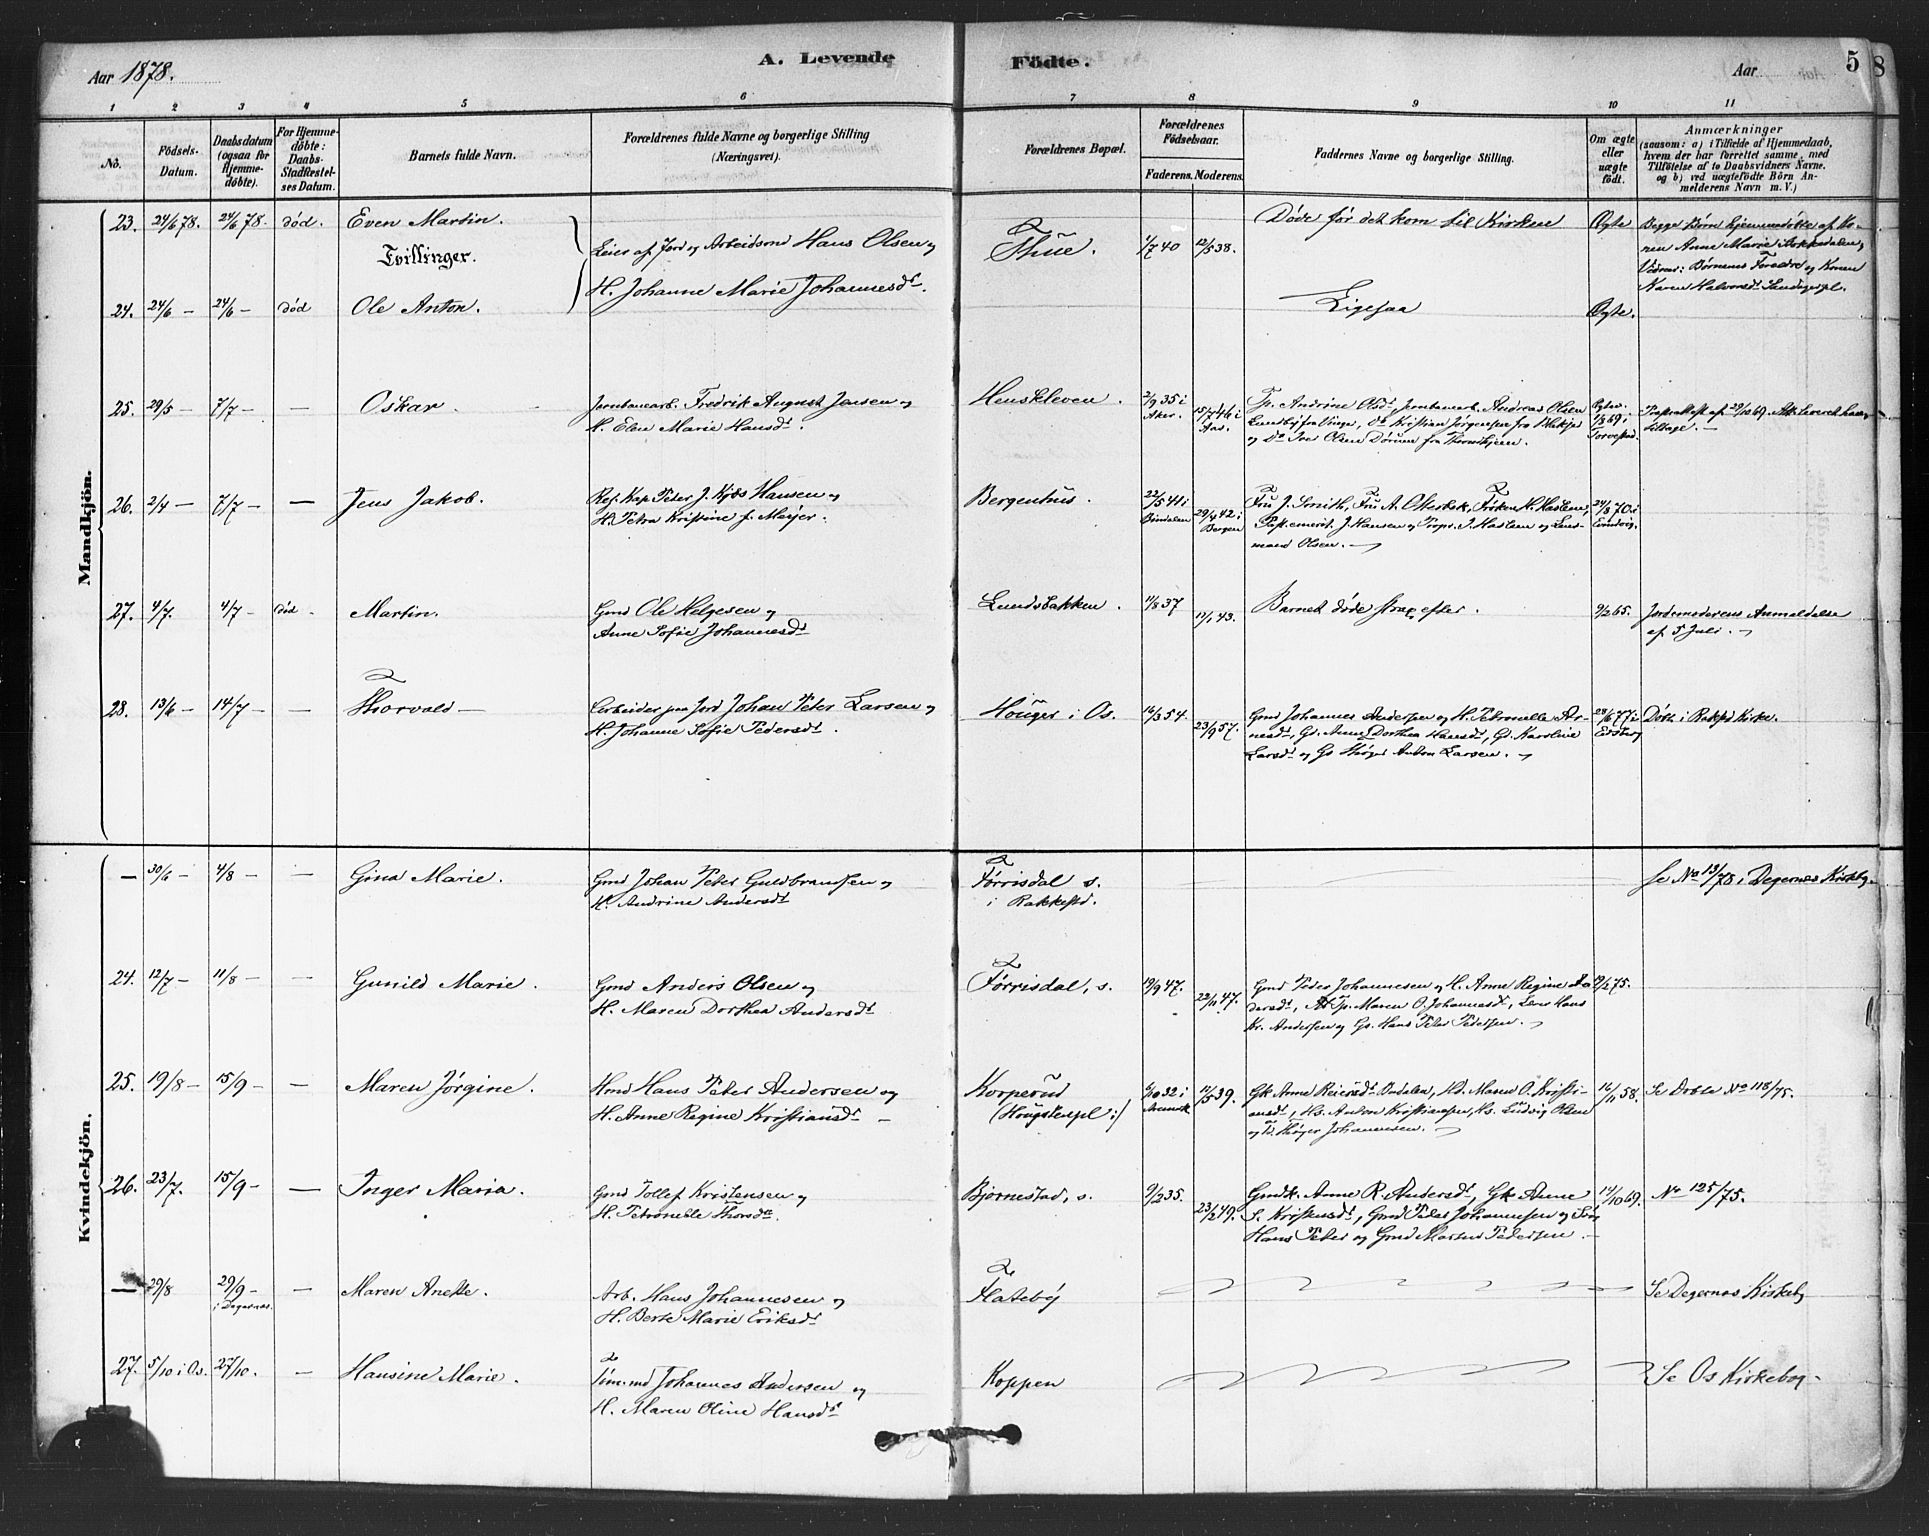 Aar 1878. A. Levende Födte. Aar 5 8
1 2 3 4 5 6 7 8 9 10 11
No.
Födsels-
Datum.
Daabsdatum
(ogsaa for
Hjemme-
döbte).
For Hjemme-
döbte:
Daabs-
Stadfæstel-
ses Datum.
Barnets fulde Navn.
Forældrenes fulde Navne og borgerlige Stilling
(Næringsvei).
Forældrenes Bopæl.
Forældrenes
Födselsaar.
Faderens. Moderens.
Faddernes Navne og borgerlige Stilling.
Om ægte
eller
uægte
födt.
Anmærkninger
(saasom: a) i Tilfælde af Hjemmedaab,
hvem der har forrettet samme, med
Tilföielse af to Daabsvidners Navne,
og b) ved uægtefödte Börn An-
melderens Navn m. V.)
Mandkjön.
23. 24/6 78. 24/6 78. död. Even Martin.
Tvillinger.
Leier af Jord og Arbeidsmd Hans Olsen og
H. Johanne Marie Johannesdt.
Thue. 1/7 40 12/5 38. Døde før det kom til Kirken Ægte
Begge Børn hjemmedöbte af Ko-
nen Anne Marie
Vidner: Børnenes Forældre og Konen
Karen Halvorsdt
24. 24/6 — 24/6 — död Ole Anton. Ligesaa Ægte.
25. 29/5 — 7/7 — — Oskar. Jernbanearb. Fredrik August Jensen og
H. Elen Marie Hansdt
Henskleven. 2/9 35 i
Aker. 15/7 46 i
Aas.
Tp. Andrine Olsdt, Jernbanearb. Andreas Olsen
fra Vinger, Do Kristian Jørgensen fra
og Do Iver Olsen Dørum fra
1/8 69 i
af 29/10 69.
tilbage. —
26. 2/4 — 7/7 — — Jens Jakob. Ref. Kap. Peter J. Kjøs Hansen og
H. Petra Kristine f. Meyer.
Bergenhus. 22/5 41 i
Bindalen 29/4 42 i
Bergen
Fru J. Smith, Fru A. Otterbek, Frøken H. Haslem,
Past. emerit. J. Hansen og Propr. J. Haslem og Lens-
mand Olsen. —
24/8 70 i
27. 4/7. 4/7 — död. Martin. Gmd Ole Helgesen og
Anne Sofie Johannesdt
Lundsbakken. 11/8 37 11/1 43. Barnet døde strax efter. 9/2 65. Jordemoderens Anmeldelse
af 5 Juli. —
28. 13/6 — 14/7 — — Thorvald — Arbeider paa Jord Johan Peter Larsen og
H. Johanne Sofie Pedersdt.
Houger i Os. 16/3 54. 23/9 57. Gmd Johannes Andersen og H. Petronelle Ar-
nesdt, Gd. Anne Dorthea Hansdt, Gd. Karoline
Larsdt og Gs Høger Anton Larsen. —
28/6 77 i
Eidsberg
Döbt i Rakst Kirke.
Kvindekjön.
— 30/6 — 4/8 — — Gina Marie. Gmd Johan Peter Guldbransen og
H. Andrine Andersdt
Førrisdal s.
i Rakkestd.
Se No 13/78 i Degernes Kirkebg.
24. 12/7 — 11/8 — — Gunild Marie. Gmd Anders Olsen og
H. Maren Dorthea Andersdt
Førrisdal, s. 19/9 47. 22/11 47. Gmd Peder Johannesen og H. Anne Regine An-
dersdt, Tp. Maren O. Johannesdt, Leier Hans
Kr. Andersen og Gs. Hans Peter Pedersen. —
19/2 75.
25. 19/8 — 15/9 — — Maren Jørgine. Hmd Hans Peter Andersen og
H. Anne Regine Kristiansdt —
Korperud
(Hougstenpl:) 6/10 32 i
Aremark 12/5 39. Gk Anne Reiersdt Budalen, Hd. Maren O. Kristi-
ansdt, Hs. Anton Kristiansen, Hs. Ludvig Olsen
og Høger Johannesen. —
16/11 58. Se Döbte No 118/75.
26. 23/7. 15/9 — — Inger Maria. Gmd Tollef Kristensen og
H. Petronelle Thorsdtr.
Bjørnestad, s. 9/2 35. 23/2 49. Gmdk. Anne R. Andersdt, Gk Anne
S. Kristensdt, Gmd Peder Johannesen og
Hans Peter og Gmd Martin Pedersen. —
14/10 69. No 125/75.
— 29/8 29/9 —
i Degernæs. — Maren Anette. Arb. Hans Johannesen og
H. Berte Marie Eriksdt
Flatebÿ Se Degernæs Kirkebg
27. 5/10 i Os. 27/10. — Hansine Marie. Tømmd Johannes Andersen og
H. Maren Oline Hansdt
Koppen Se Os Kirkebog —